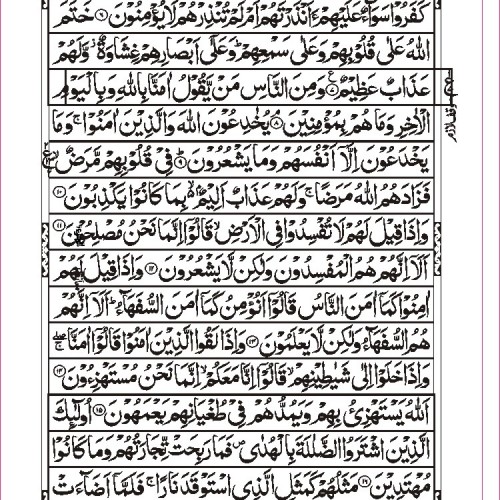 كَفَرُوْا سَوَآءٌ عَلَيْهِمْ ءَاَنْذَرْتَهُمْ اَمْ لَمْ تُنْذِرْهُمْ لَا يُؤْمِنُوْنَ ۶ خَتَمَ
اللّٰهُ عَلٰى قُلُوْبِهِمْ وَعَلٰى سَمْعِهِمْ ؕ وَعَلٰى اَبْصَارِهِمْ غِشَاوَةٌ ؗ وَّلَهُمْ
عَذَابٌ عَظِيْمٌ ۷ وَمِنَ النَّاسِ مَنْ يَّقُوْلُ اٰمَنَّا بِاللّٰهِ وَبِالْيَوْمِ
الْاٰخِرِ وَمَا هُمْ بِمُؤْمِنِيْنَ ۸ يُخٰدِعُوْنَ اللّٰهَ وَالَّذِيْنَ اٰمَنُوْا ۚ وَمَا
يَخْدَعُوْنَ اِلَّاۤ اَنْفُسَهُمْ وَمَا يَشْعُرُوْنَ ۹ فِيْ قُلُوْبِهِمْ مَّرَضٌ
فَزَادَهُمُ اللّٰهُ مَرَضًا ۚ وَلَهُمْ عَذَابٌ اَلِيْمٌۢ بِمَا كَانُوْا يَكْذِبُوْنَ ۱۰
وَاِذَا قِيْلَ لَهُمْ لَا تُفْسِدُوْا فِي الْاَرْضِ ۙ قَالُوْۤا اِنَّمَا نَحْنُ مُصْلِحُوْنَ ۱۱
اَلَاۤ اِنَّهُمْ هُمُ الْمُفْسِدُوْنَ وَلٰكِنْ لَّا يَشْعُرُوْنَ ۱۲ وَاِذَا قِيْلَ لَهُمْ
اٰمِنُوْا كَمَاۤ اٰمَنَ النَّاسُ قَالُوْۤا اَنُؤْمِنُ كَمَاۤ اٰمَنَ السُّفَهَآءُ ؕ اَلَاۤ اِنَّهُمْ
هُمُ السُّفَهَآءُ وَلٰكِنْ لَّا يَعْلَمُوْنَ ۱۳ وَاِذَا لَقُوا الَّذِيْنَ اٰمَنُوْا قَالُوْۤا اٰمَنَّا
وَاِذَا خَلَوْا اِلٰى شَيٰطِيْنِهِمْ ۙ قَالُوْۤا اِنَّا مَعَكُمْ ۙ اِنَّمَا نَحْنُ مُسْتَهْزِءُوْنَ ۱۴
اَللّٰهُ يَسْتَهْزِئُ بِهِمْ وَيَمُدُّهُمْ فِيْ طُغْيَانِهِمْ يَعْمَهُوْنَ ۱۵ اُولٰٓئِكَ
الَّذِيْنَ اشْتَرَوُا الضَّلٰلَةَ بِالْهُدٰى ۪ فَمَا رَبِحَتْ تِّجَارَتُهُمْ وَمَا كَانُوْا
مُهْتَدِيْنَ ۱۶ مَثَلُهُمْ كَمَثَلِ الَّذِي اسْتَوْقَدَ نَارًا ۚ فَلَمَّاۤ اَضَآءَتْ